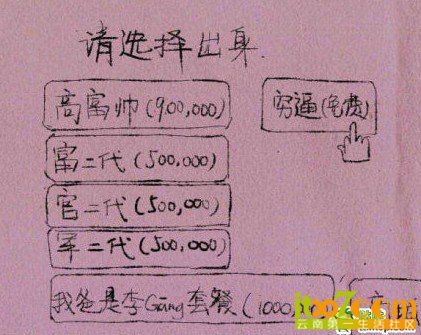 请选择出身
高富帅(900,000)
穷逼(免费)
富二代(500,000)
官二代(500,000)
军二代(500,000)
我爸是李Gāng套餐(1000,
云南第一生活社区